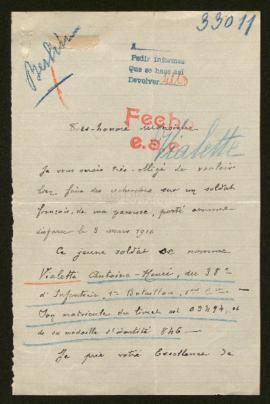 33011
Berlin
A
Pedir informes
Que se haga así
Devolver
Fecho
e.a.c
Vialette
Très-honoré
Je vous serais très-obligé de vouloir
bien faire des recherches sur un soldat
français, de ma paroisse, porté comme
disparu le 3 mars 1916
Ce jeune soldat se nomme
Vialette Antoine-Henri, du 38e
d'Infanterie, 1er Bataillon, 1ère Cie
Son matricule du livret est 03494, et
de sa médaille d'identité 846 -
Je prie votre Excellence de